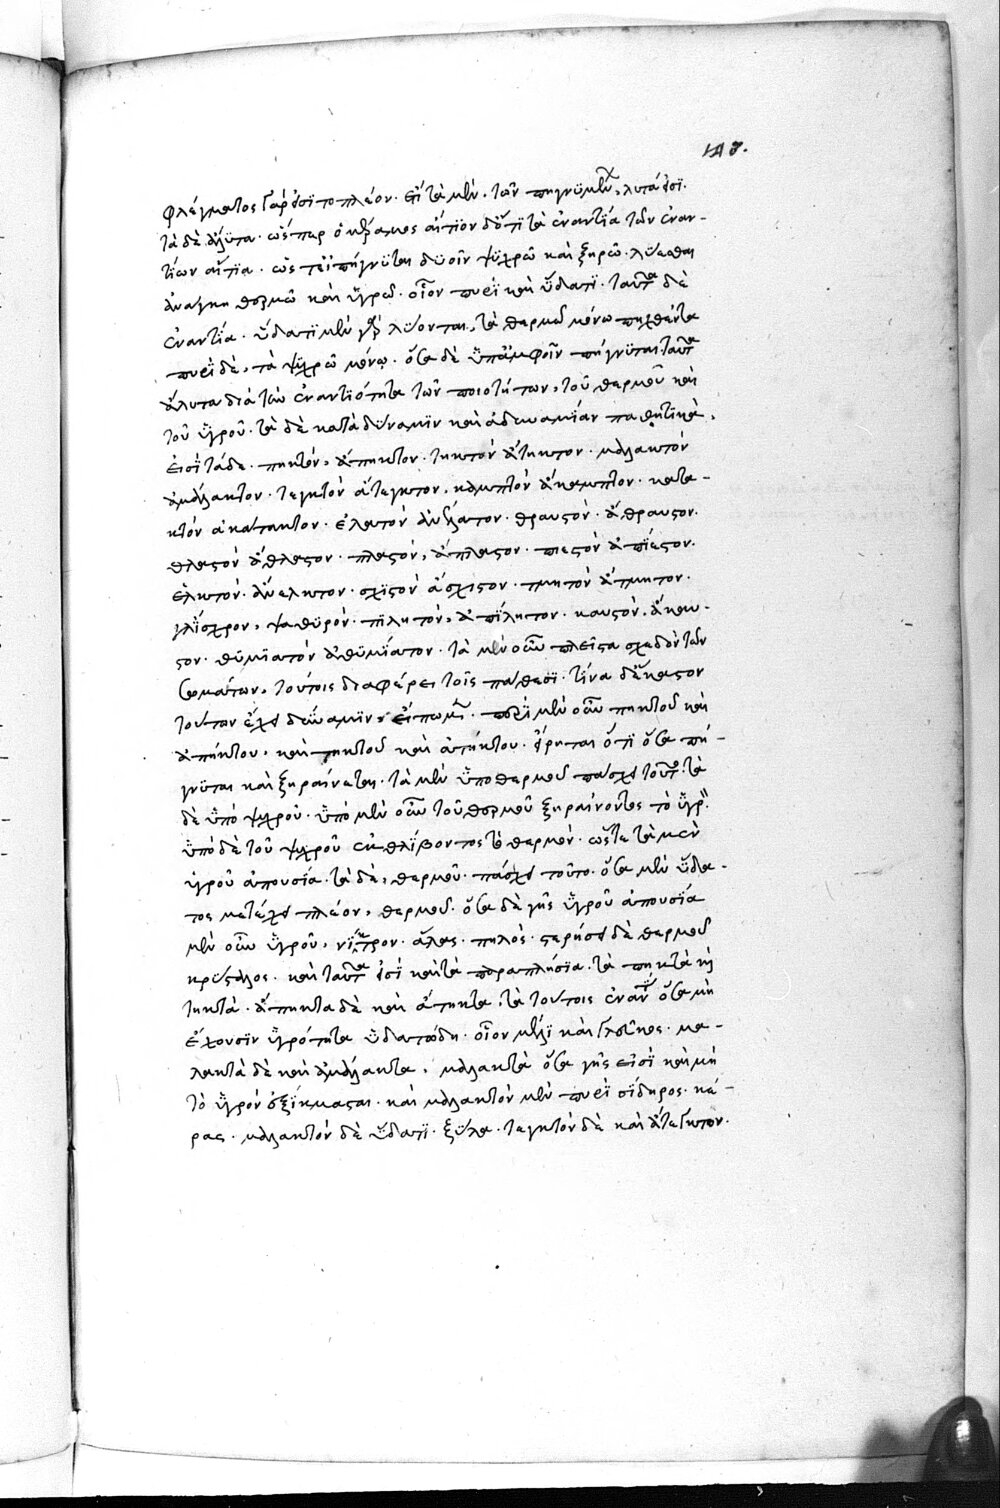 143.
φλέγματος γάρ ἐστϊ το πλέον. ἔτι τὰ μὲν, τῶν πηγνϋμένων, λυτά ἐστϊ.
τὰ δὲ ἄλϋτα. ὥσπερ ὁ κέραμος αἴτϊον δὅτϊ τὰ ἐναντία τῶν ἐναν-
τίων αἴτϊα. ὥστε εἰ πήγνϋται δϋοῖν ψϋχρῶ καὶ ξηρῶ. λϋεσθαι
ἀνάγκη θερμῶ καὶ ϋγρῶ. οἷον πυρϊ καὶ ὕδατι. ταῦτα δὲ
ἐναντία. ὕδατϊ μὲν γὰρ λϋονται, τὰ θερμῶ μόνω πηχθέντα
πυρϊ δὲ, τὰ ψϋχρῶ μόνω. ὅσα δὲ ϋπ' ἀμφοῖν πήγνϋται, ταῦτα
ἄλυτα διὰ τὴν ἐναντϊότητα τῶν ποιοτήτων, τοῦ θερμοῦ καὶ
τοῦ ϋγροῦ. τὰ δὲ κατὰ δϋναμϊν καὶ ἀδυναμίαν παθητϊκὰ,
εἰσϊ τάδε. πηκτόν, ἄπηκτον. τηκτόν ἄτηκτον. μαλακτόν
ἀμάλακτον. τεγκτόν ἄτεγκτον. καμπτόν ἄκαμπτον. κατα-
κτόν ἀκάτακτον. ἐλατόν ἀνήλατον. θραυστόν. ἄθραυστον.
θλαστόν ἄθλαστον. πλαστόν, ἄπλαστον. πιεστόν ἀπϊεστον.
ἑλκτόν. ἀνελκτον. σχϊστόν ἄσχιστον. τμητόν ἄτμητον.
γλΐσχρον, ψαθϋρόν. πϊλητόν, ἀπΐλητον. καυστόν. ἄκαυ-
στον. θϋμϊατόν ἀθϋμΐατον. τὰ μὲν οὖν πλεῖστα σχεδὸν τῶν
σωμάτων, τούτοις διαφέρει τοῖς πάθεσϊ. τίνα δ' ἕκαστον
τούτων ἔχει δύναμϊν, εἴπωμεν. περὶ μὲν οὖν πηκτοῦ καὶ
ἀπήκτου, καὶ τηκτοῦ καὶ ἀτήκτου. εἴρηται ὅτι ὅσα πή-
γνϋται καὶ ξηραίνεται. τὰ μὲν ϋπο θερμοῦ πάσχει τοῦτο. τὰ
δὲ ϋπό ψυχροῦ. ϋπό μὲν οὖν τοῦ θερμοῦ ξηραίνοντος τὸ ϋγρόν.
ϋπό δὲ τοῦ ψυχροῦ ἐκθλίβοντος τὸ θερμόν. ὥστε τὰ μὲν
ϋγροῦ ἀπουσία. τὰ δὲ, θερμοῦ. πάσχει τοῦτο. ὅσα μὲν ὕδα-
τος μετέχει πλέον, θερμοῦ. ὅσα δὲ γῆς ϋγροῦ ἀπουσία
μὲν οὖν ϋγροῦ, νίτρον. ἅλας. πηλός. στερήσει δὲ θερμοῦ
κρϋσταλος. καὶ ταῦτα ἐστί καὶ τὰ παραπλήσϊα. τὰ πηκτὰ καὶ
τηκτά. ἄπηκτα δὲ καὶ ἄτηκτα, τὰ τούτοις ἐναντία ὅσα μὴ
ἔχουσϊν ϋγρότητα ϋδατώδη. οἷον μέλϊ καὶ γλεῦκος. μα-
λακτὰ δὲ καὶ ἀμάλακτα, μαλακτὰ ὅσα γῆς εἰσί καὶ μὴ
τὸ ϋγρόν ἐξΐκμασται. καὶ μαλακτόν μὲν πυρϊ σίδηρος. κέ-
ρας. μαλακτόν δὲ ὕδατϊ. ξϋλα. τεγκτόν δὲ καὶ ἄτεγκτον.